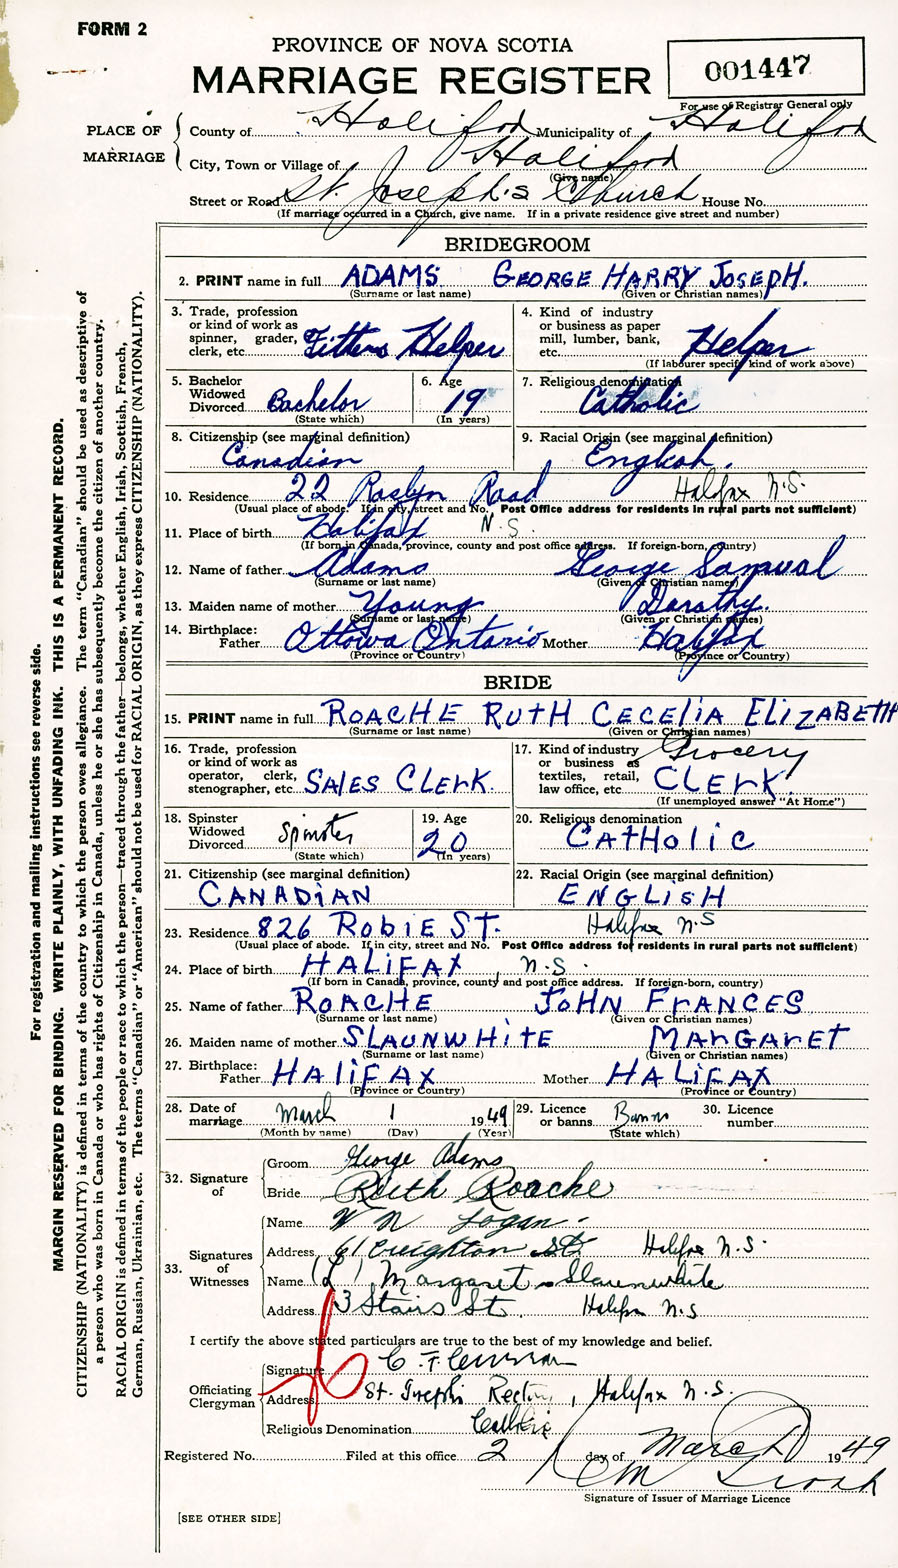 FORM 2
PROVINCE OF NOVA SCOTIA
MARRIAGE REGISTER
001447
For use of Registrar General only
PLACE OF MARRIAGE
County of Halifax Municipality of Halifax
City, Town or Village of Halifax
(Give name)
Street or Road St. Joseph's Church House No.
(If marriage occurred in a Church, give name. If in a private residence give street and number)
BRIDEGROOM
2. PRINT name in full ADAMS GEORGE HARRY JOSEPH.
(Surname or last name) (Given or Christian names)
3. Trade, profession or kind of work as spinner, grader, clerk, etc. Fitters Helper
4. Kind of industry or business as paper mill, lumber, bank, etc. Helper
(If labourer specify kind of work above)
5. Bachelor Widowed Divorced Bachelor
(State which)
6. Age 19
(In years)
7. Religious denomination
Catholic
8. Citizenship (see marginal definition)
Canadian
9. Racial Origin (see marginal definition)
English.
10. Residence 22 Roslyn Road Halifax N.S.
(Usual place of abode. If in city, street and No. Post Office address for residents in rural parts not sufficient)
11. Place of birth Halifax N.S.
(If born in Canada, province, county and post office address. If foreign-born, country)
12. Name of father Adams George Samual
(Surname or last name) (Given or Christian names)
13. Maiden name of mother Young Dorathy.
(Surname or last name) (Given or Christian names)
14. Birthplace: Father Ottowa Ontario Mother Halifax
(Province or Country) (Province or Country)
BRIDE
15. PRINT name in full ROACHE RUTH CECELIA ELIZABETH
(Surname or last name) (Given or Christian names)
16. Trade, profession or kind of work as operator, clerk, stenographer, etc. SALES CLERK.
17. Kind of industry or business as textiles, retail, law office, etc Grocery CLERK.
(If unemployed answer "At Home")
18. Spinster Widowed Divorced Spinster
(State which)
19. Age 20
(In years)
20. Religious denomination
CATHOLIC
21. Citizenship (see marginal definition)
CANADIAN
22. Racial Origin (see marginal definition)
ENGLISH
23. Residence 826 ROBIE ST. Halifax N.S
(Usual place of abode. If in city, street and No. Post Office address for residents in rural parts not sufficient)
24. Place of birth HALIFAX, N.S.
(If born in Canada, province, county and post office address. If foreign-born, country)
25. Name of father ROACHE JOHN FRANCES
(Surname or last name) (Given or Christian names)
26. Maiden name of mother SLAUNWHITE MARGARET
(Surname or last name) (Given or Christian names)
27. Birthplace: Father HALIFAX Mother HALIFAX
(Province or Country) (Province or Country)
28. Date of marriage March 1 1949
(Month by name) (Day) (Year)
29. Licence or banns Banns
(State which)
30. Licence number
32. Signature of
Groom George Adams
Bride Ruth Roache
33. Signatures of Witnesses
Name W N Logan
Address 61 Creighton St. Halifax N.S.
Name Margaret Slaunwhite
Address 3 Stairs St. Halifax N.S
I certify the above stated particulars are true to the best of my knowledge and belief.
Officiating Clergyman
Signature C. F.
Address St. Joseph's Rectory, Halifax N.S.
Religious Denomination Catholic
Registered No. Filed at this office 2 day of March 1949
Signature of Issuer of Marriage Licence
[SEE OTHER SIDE]
For registration and mailing instructions see reverse side.
MARGIN RESERVED FOR BINDING. WRITE PLAINLY, WITH UNFADING INK. THIS IS A PERMANENT RECORD.
CITIZENSHIP (NATIONALITY) is defined in terms of the country to which the person owes allegiance. The term "Canadian" should be used as descriptive of
a person who was born in Canada or who has rights of Citizenship in Canada, unless he or she has subsequently become the citizen of another country.
RACIAL ORIGIN is defined in terms of the people or race to which the person—traced through the father—belongs, whether English, Irish, Scottish, French,
German, Russian, Ukrainian, etc. The terms "Canadian" or "American" should not be used for RACIAL ORIGIN, as they express CITIZENSHIP (NATIONALITY).